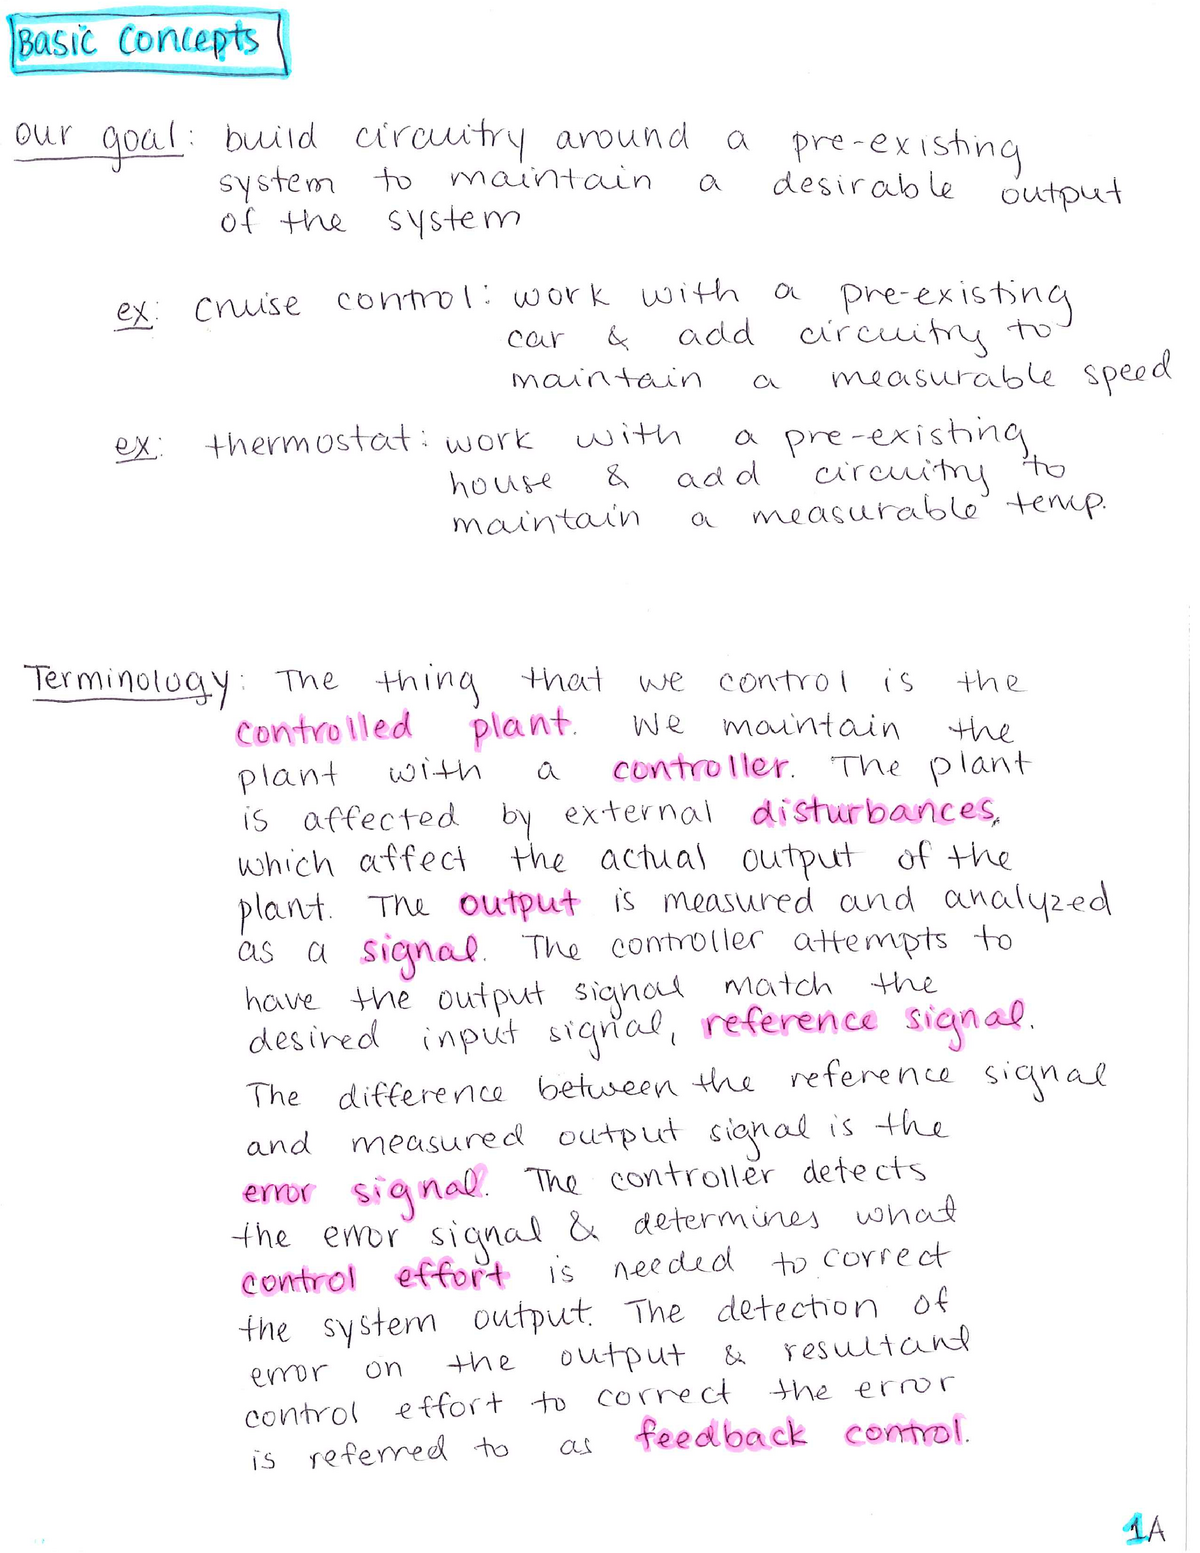 Basic Concepts
our goal: build circuitry around a pre-existing
system to maintain a desirable output
of the system
ex: cruise control: work with a pre-existing
car & add circuitry to
maintain a measurable speed
ex: thermostat: work with a pre-existing
house & add circuitry to
maintain a measurable temp.
Terminology: The thing that we control is the
controlled plant. We maintain the
plant with a controller. The plant
is affected by external disturbances,
which affect the actual output of the
plant. The output is measured and analyzed
as a signal. The controller attempts to
have the output signal match the
desired input signal, reference signal.
The difference between the reference signal
and measured output signal is the
error signal. The controller detects
the error signal & determines what
control effort is needed to correct
the system output. The detection of
error on the output & resultant
control effort to correct the error
is referred to as feedback control.
1A